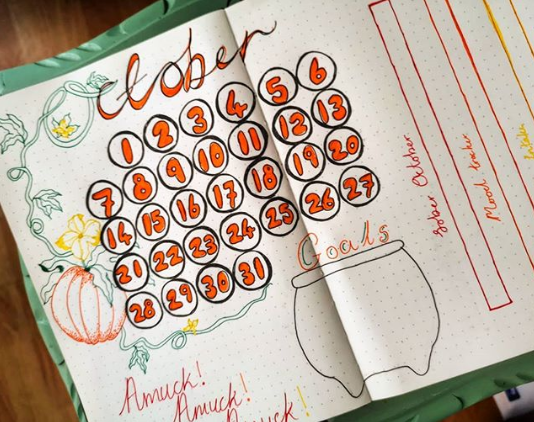 October
1 2 3 4 5 6
7 8 9 10 11 12 13
14 15 16 17 18 19 20
21 22 23 24 25 26 27
28 29 30 31
Goals
Amuck!
Amuck!
Amuck!
Sober October
Mood tracker
Intake